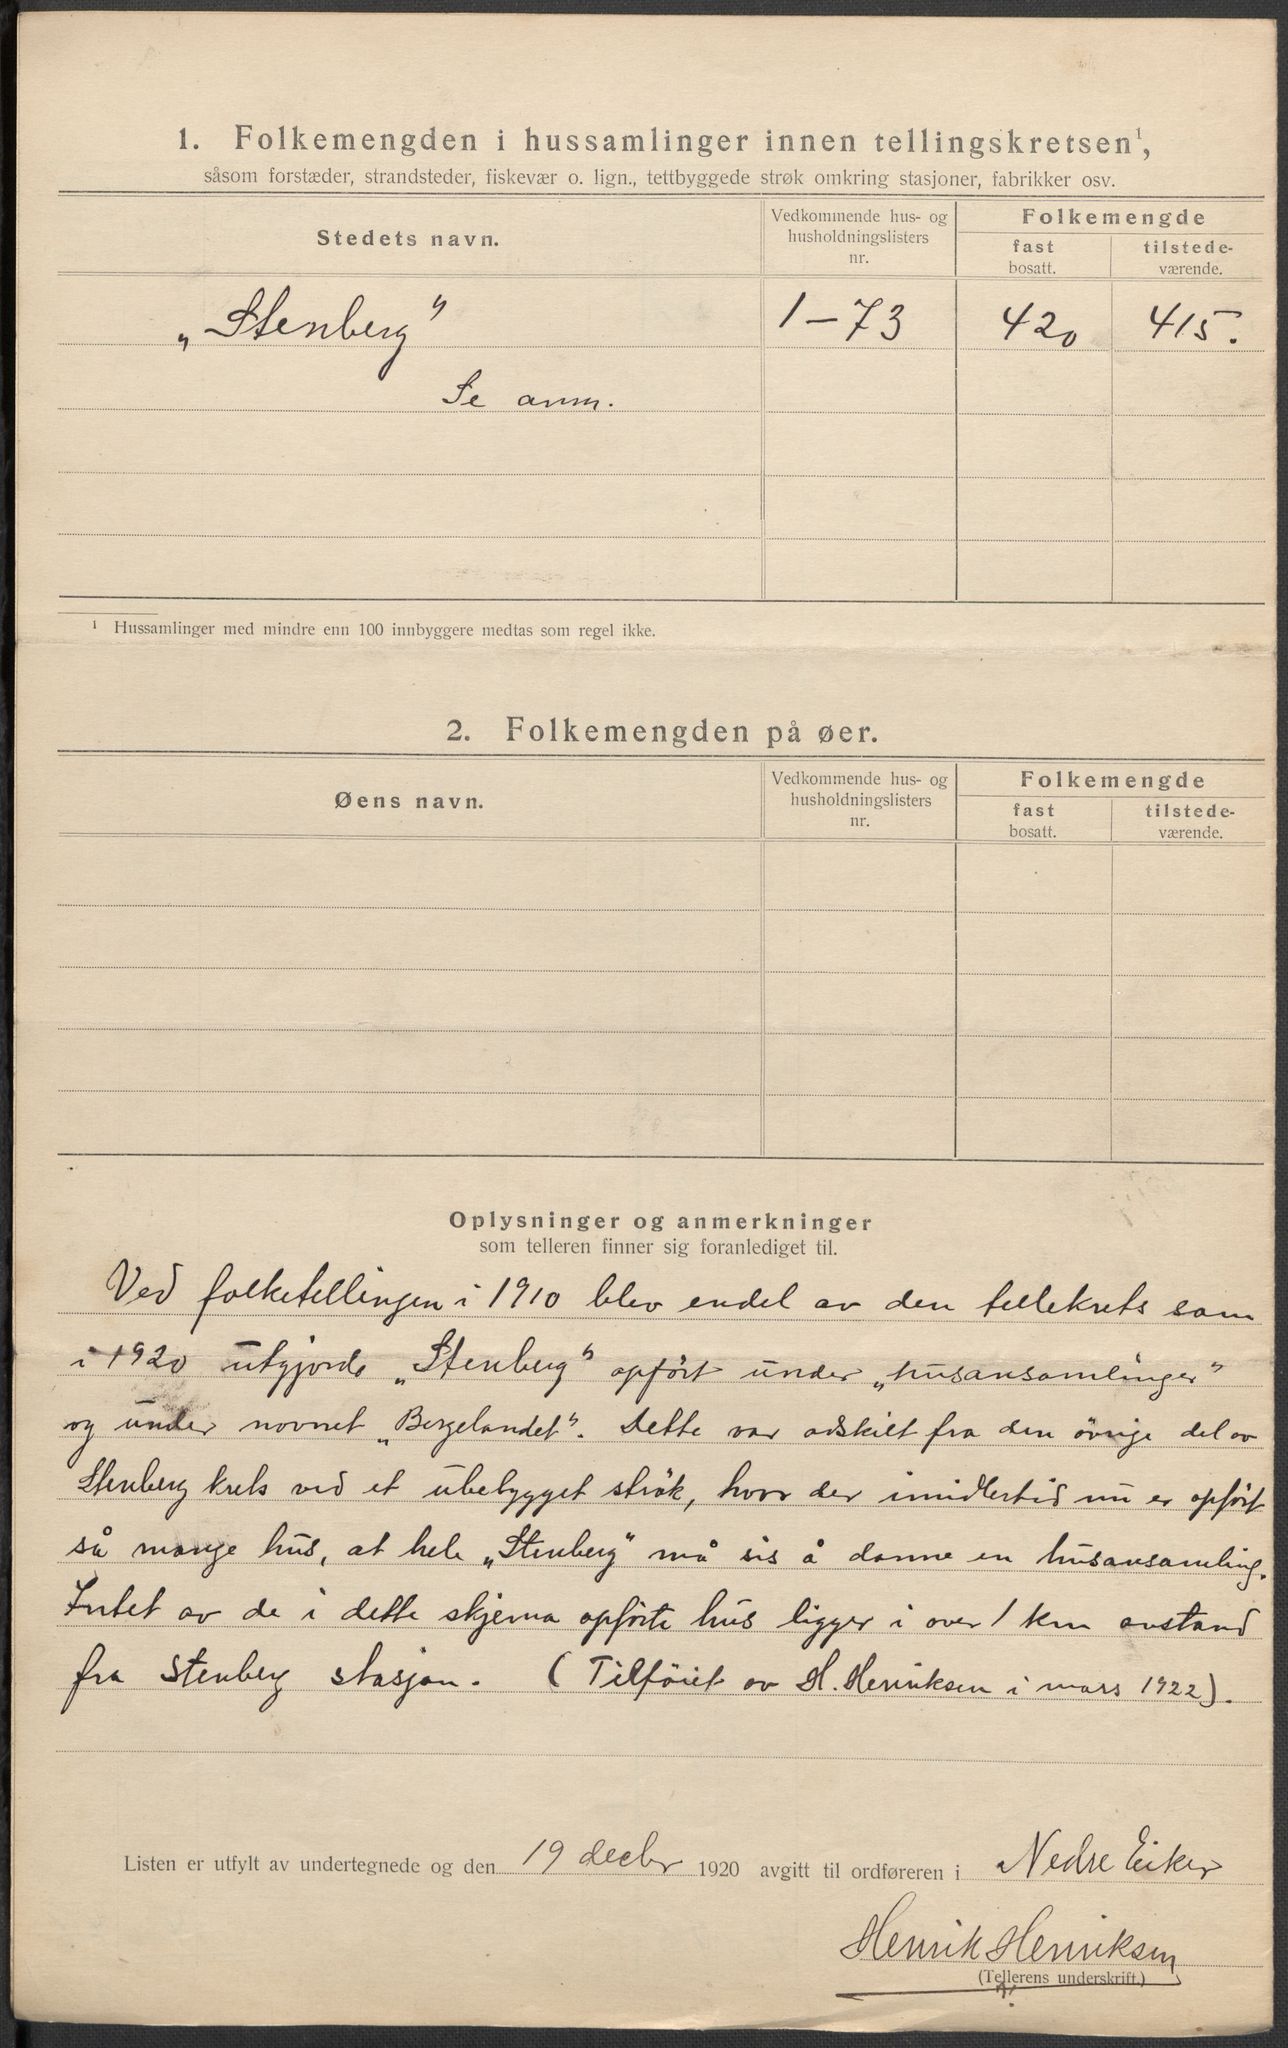 1. Folkemengden i hussamlinger innen tellingskretsen¹,
såsom forstæder, strandsteder, fiskevær o. lign., tettbyggede strøk omkring stasjoner, fabrikker osv.
Stedets navn.
Vedkommende hus- og
husholdningslisters
nr.
Folkemengde
fast
bosatt.
tilstede-
værende.
„Stenberg" 1-73 420 415.
Se anm.
¹ Hussamlinger med mindre enn 100 innbyggere medtas som regel ikke.
2. Folkemengden på øer.
Øens navn.
Vedkommende hus- og
husholdningslisters
nr.
Folkemengde
fast
bosatt.
tilstede-
værende.
Oplysninger og anmerkninger
som telleren finner sig foranlediget til.
Ved folketellingen i 1910 blev endel av den tellekrets som
i 1920 utgjorde „Stenberg" opført under „husansamlinger"
og under navnet „Bergelandet". Dette var adskilt fra den övrige del av
Stenberg krets ved et ubebygget strök, hvor der imidlertid nu er opført
så mange hus, at hele „Stenberg" må sis å danne en husansamling.
Intet av de i dette skjema opförte hus ligger i over 1 km avstand
fra Stenberg stasjon. (Tilföiet av H. Henriksen i mars 1922).
Listen er utfylt av undertegnede og den 19 decbr 1920 avgitt til ordføreren i Nedre Eiker
Henrik Henriksen
(Tellerens underskrift.)